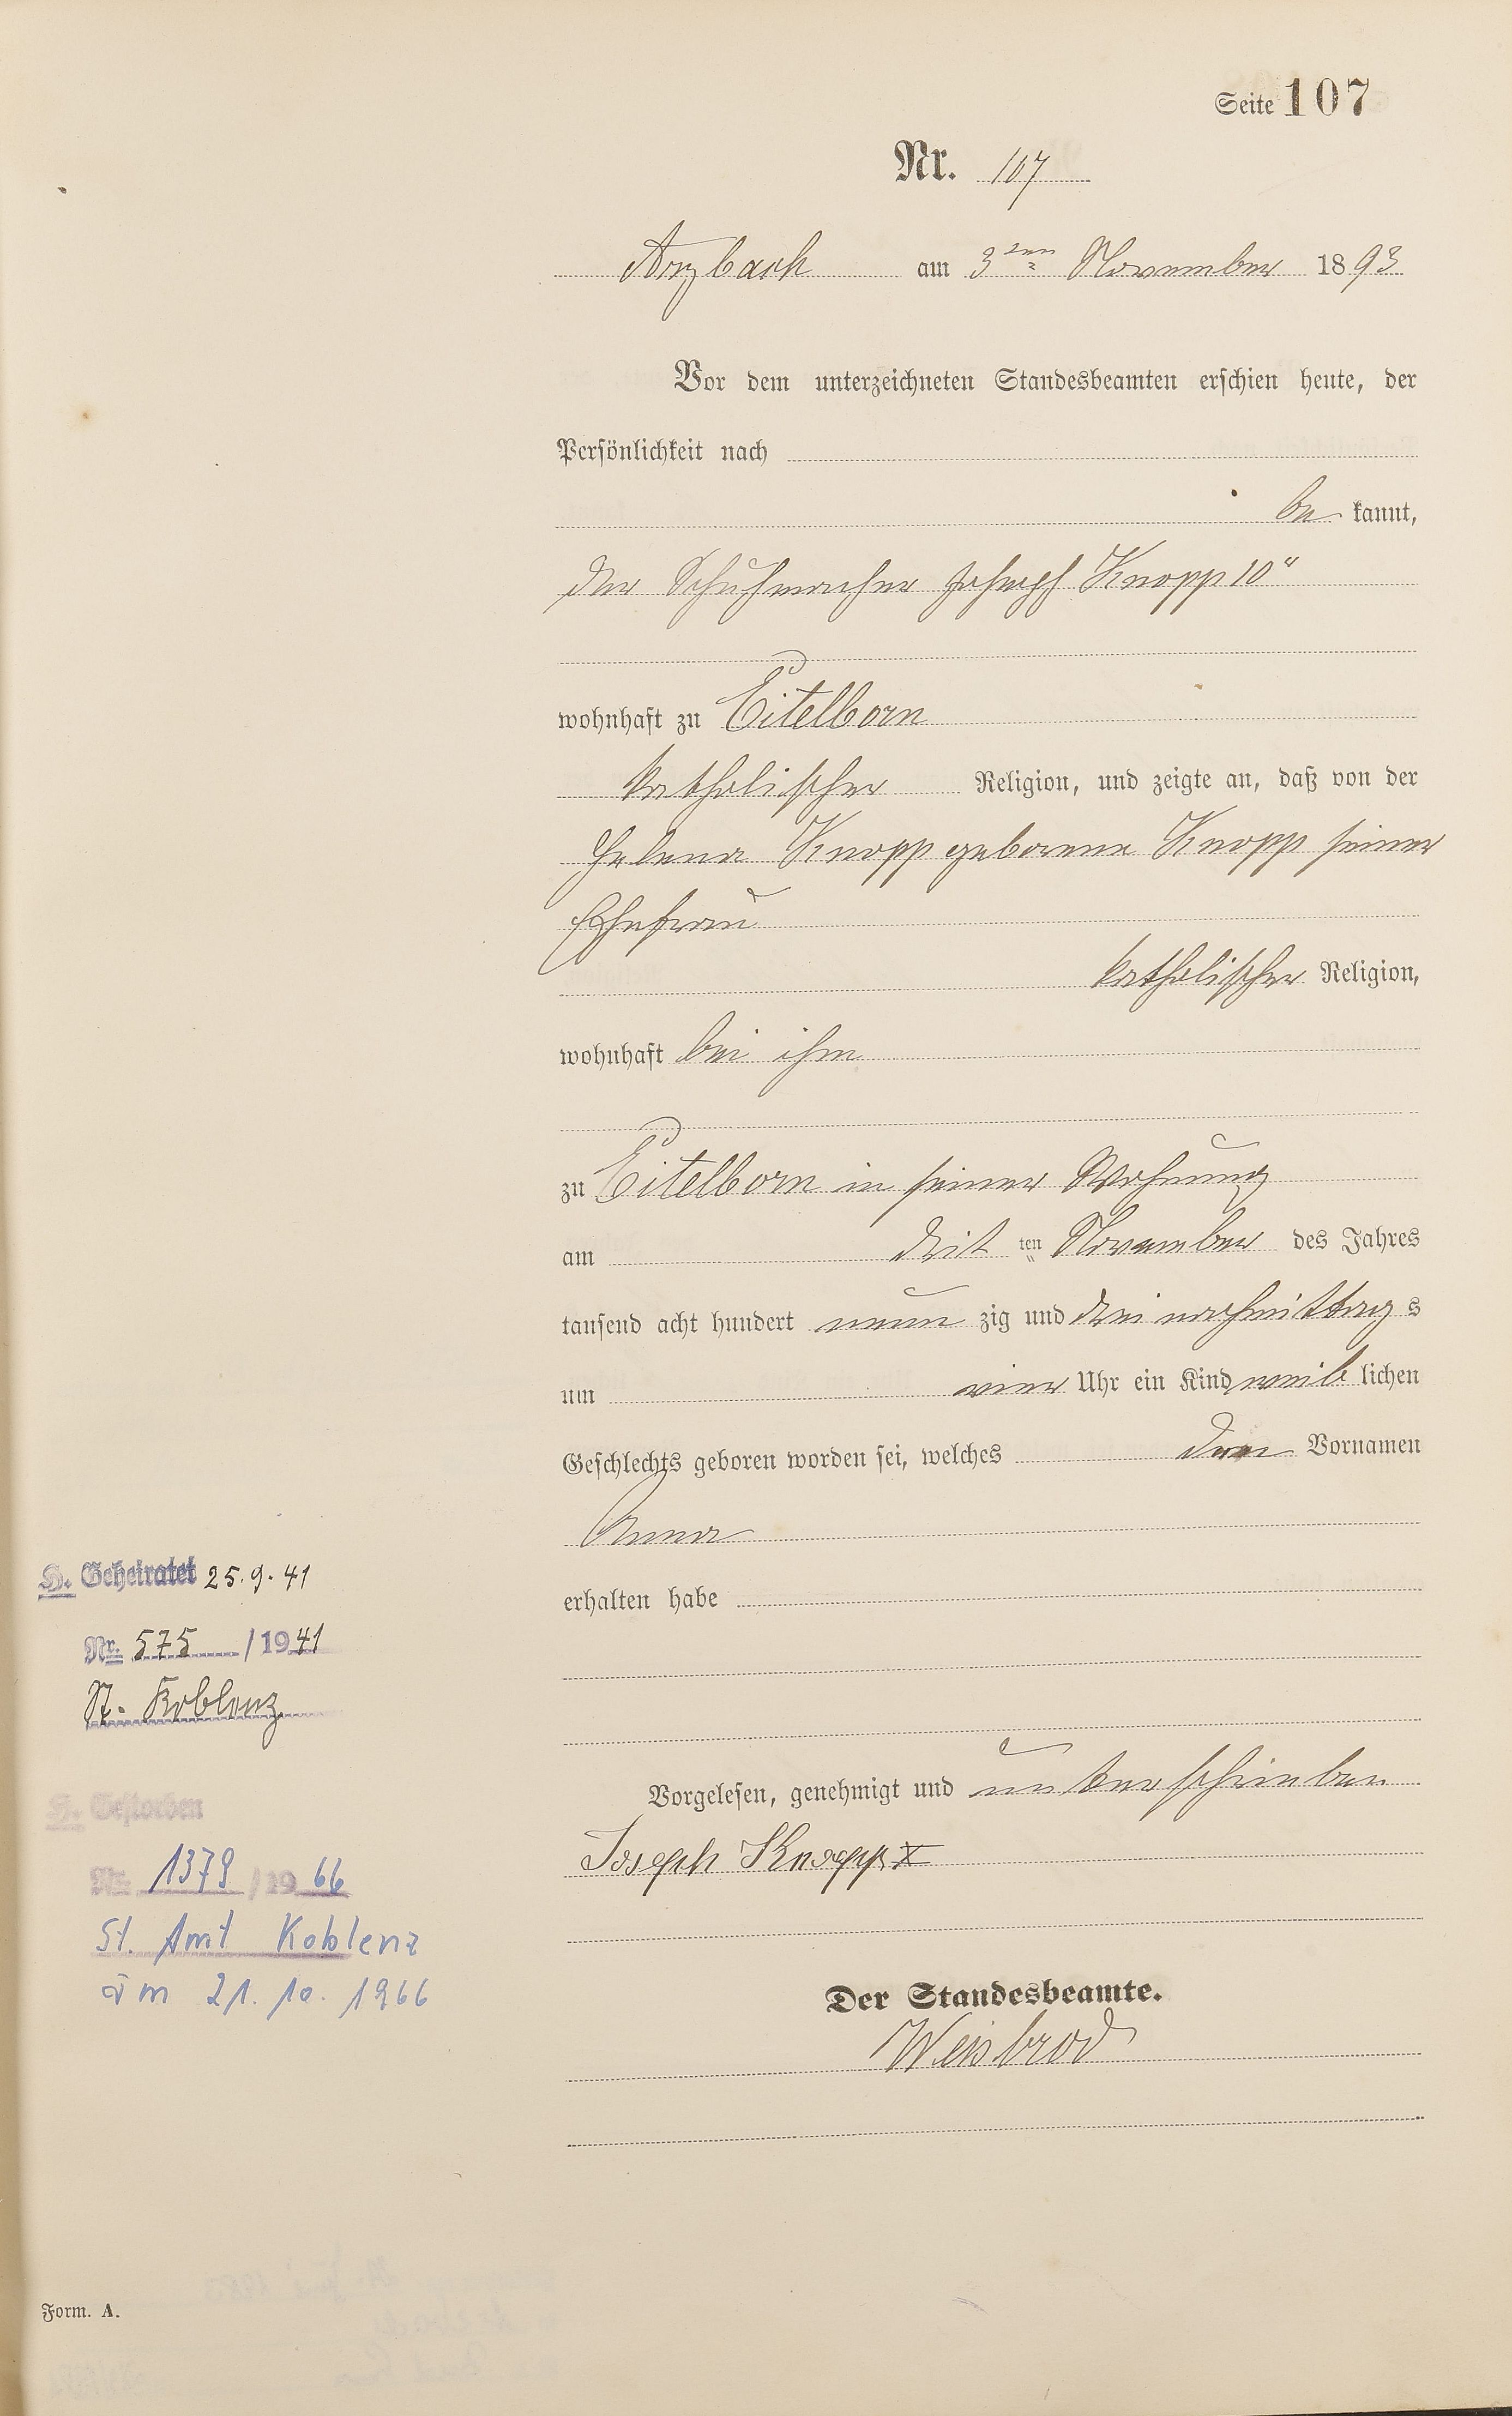 Seite 107
Nr. 107
Arzbach am 3ten November 1893
Vor dem unterzeichneten Standesbeamten erschien heute, der
Persönlichkeit nach
be kannt,
der Schuhmacher Joseph Knopp 10"
wohnhaft zu Eitelborn
katholischer Religion, und zeigte an, daß von der
Helena Knopp geborene Knopp seiner
Ehefrau
katholischer Religion,
wohnhaft bei ihm
zu Eitelborn in seiner Wohnung
am drit ten November des Jahres
tausend acht hundert neun zig und drei nachmittag s
um vier Uhr ein Kind weib lichen
Geschlechts geboren worden sei, welches den Vornamen
Anna
erhalten habe
Vorgelesen, genehmigt und unterschrieben
Joseph Knopp X
Der Standesbeamte.
Weisbrod
H. Geheiratet 25.9.41
Nr. 575 / 1941
St. Koblenz
H. Gestorben
Nr. 1379 / 19 66
St. Amt Koblenz
am 21.10.1966
Form. A.